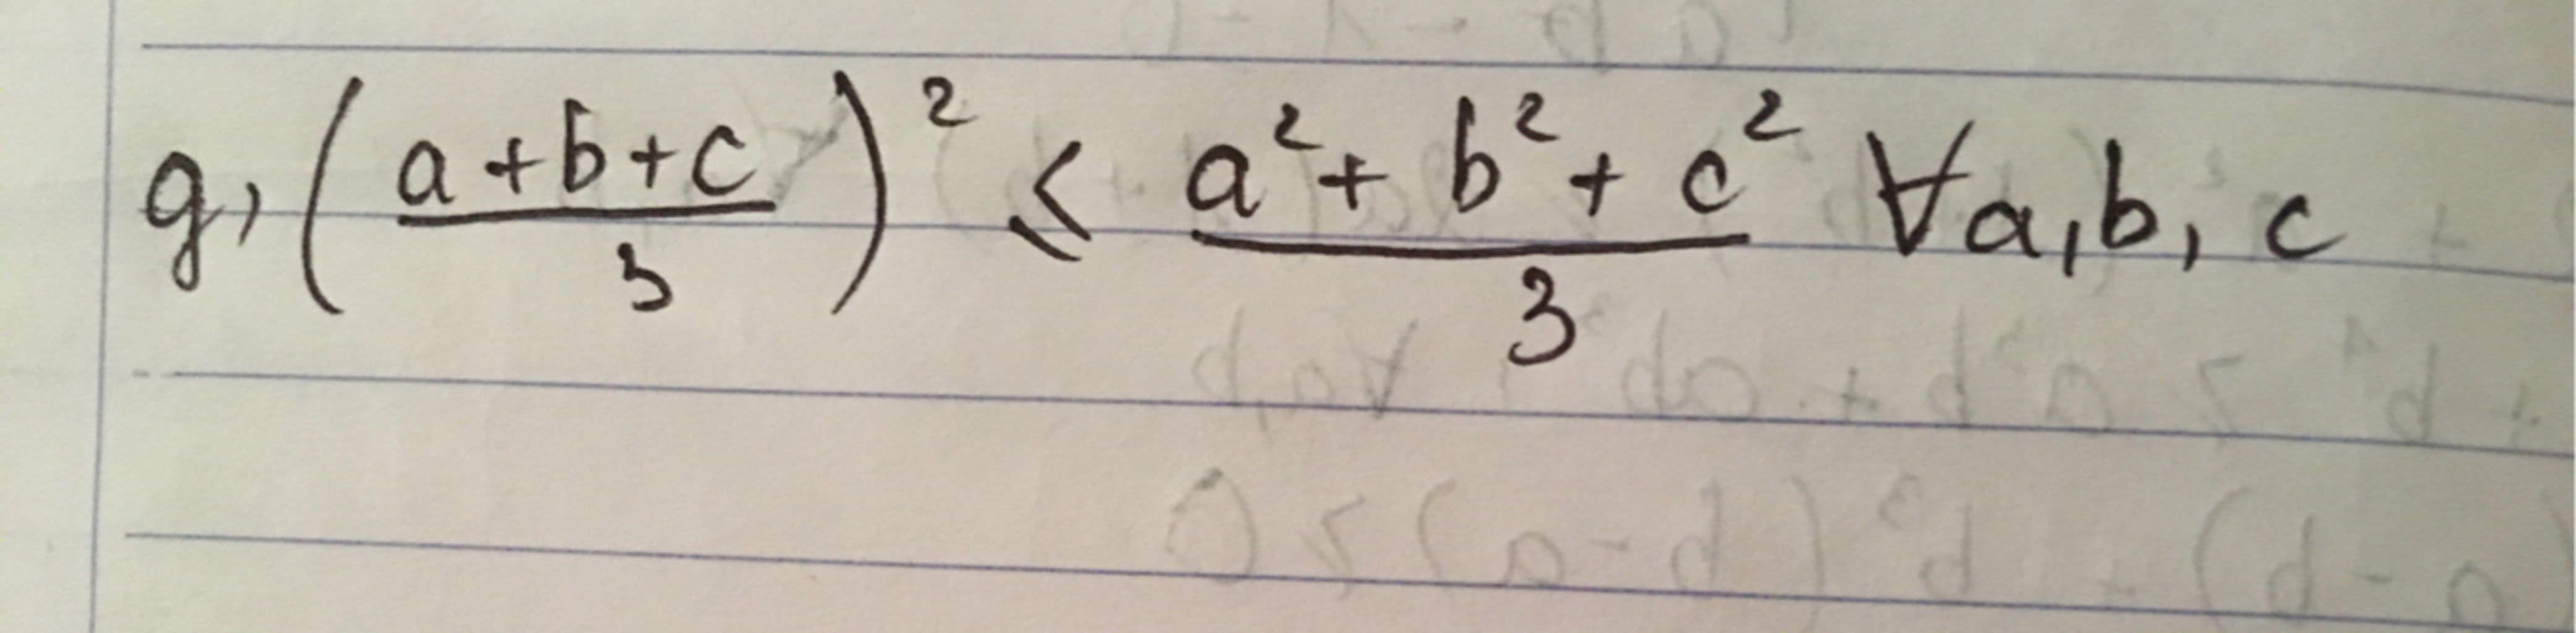 g, ( (a+b+c)/3 )² ⩽ (a² + b² + c²)/3 ∀a,b,c